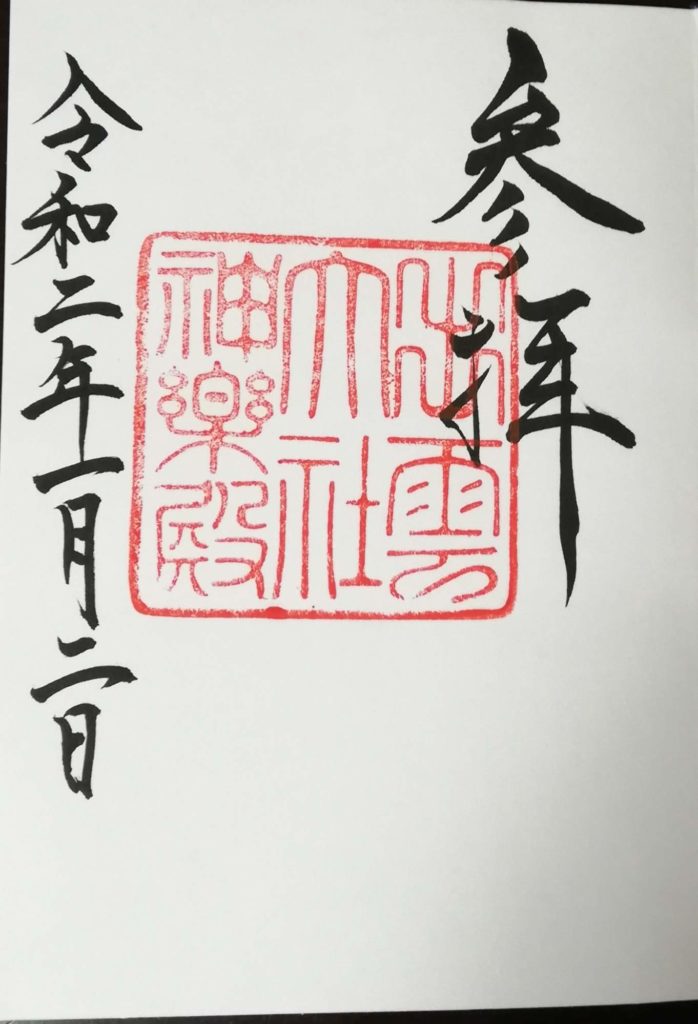 参拜
出雲
大社
神樂殿
令和二年一月二日